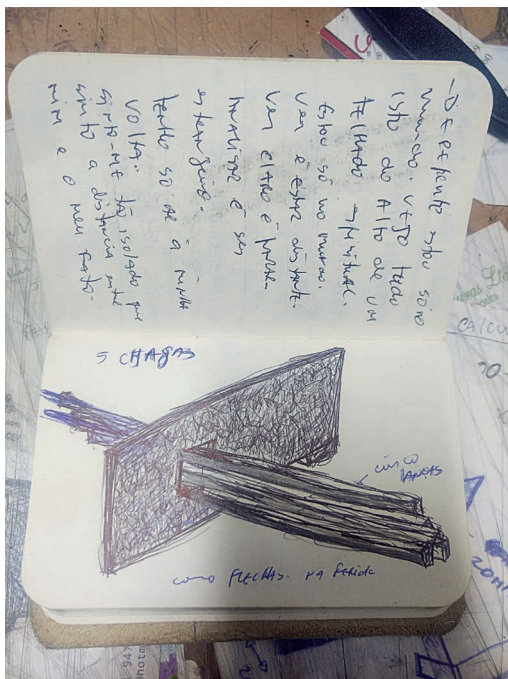 - De repente estou só no
mundo. Vejo tudo
isto do Alto de um
telhado espiritual.
Estou só no mundo.
Ver é estar distante.
Ver claro é parar.
Analisar é ser
estrangeiro.
tenho só de à minha
VOLTA:
sinto-me tão isolado que
sinto a distância entre
mim e o meu fato.
5 CHAGAS
cinco
LANÇAS
como FLECHAS. NA ferida
CALCU